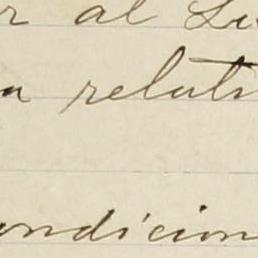 r al Lu
a relati
ondicion